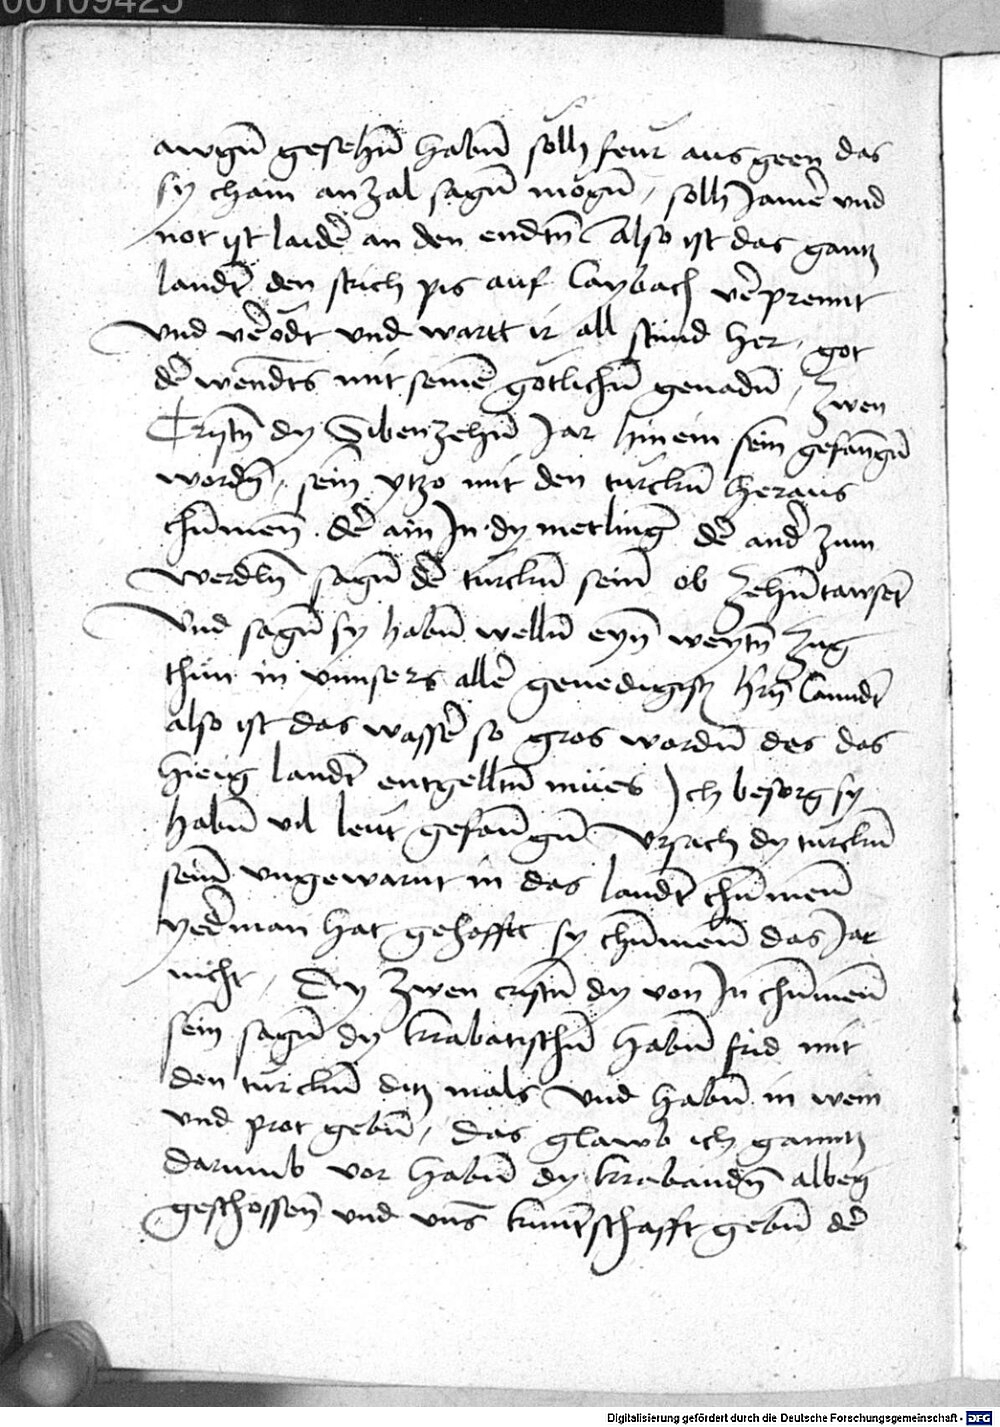 00109425
awgn̄ gesehn̄ habn̄ solh feur aus geen das
sy chain anzal sagn̄ mögn̄, solh Jamer und
not ist laider an den endtn̄ Also ist das gantz
landt den strich pis auf Laybach verprennt
und verödt und wartt ir all stund her, got
der wendts mit seinen götlichn̄ genadn̄, Zwen
Cristn̄ dy Sibenzehn̄ Jar hinein sein gefangn̄
wordn̄, sein ytzo mit den turckn̄ heraus
chumen̄. der ain Jn dy metling der ander zum
werdln̄ sagn̄ der turckn̄ sein ob Zehn̄tawset
Und sagn̄ sy habn̄ welln̄ eyn̄ weytn̄ Zug
thun in unnsers aller genedigistn̄ hrn̄ Lanndt
also ist das wasser so gros wordn̄ des das
hieig landt entgelltn̄ mües Jch besorg sy
habn̄ vil leut gefangn̄ Ursach dy turckn̄
sein ungewarnt in das landt chumen̄
yederman hat gehofft sy chumen̄ das Jar
nicht, Dy Zwen cristn̄ dy von Jn chumen̄
sein sagn̄ dy krabatischn̄ habn̄ frid mit
den turckn̄ ditz mals und habn̄ in wein
und prot gebn̄, das glawb ich ganntz
darumb vor habn̄ dy krabaudn̄ albeg
geschossen̄ und uns kuntschafft gebn̄ der
Digitalisierung gefördert durch die Deutsche Forschungsgemeinschaft - DFG